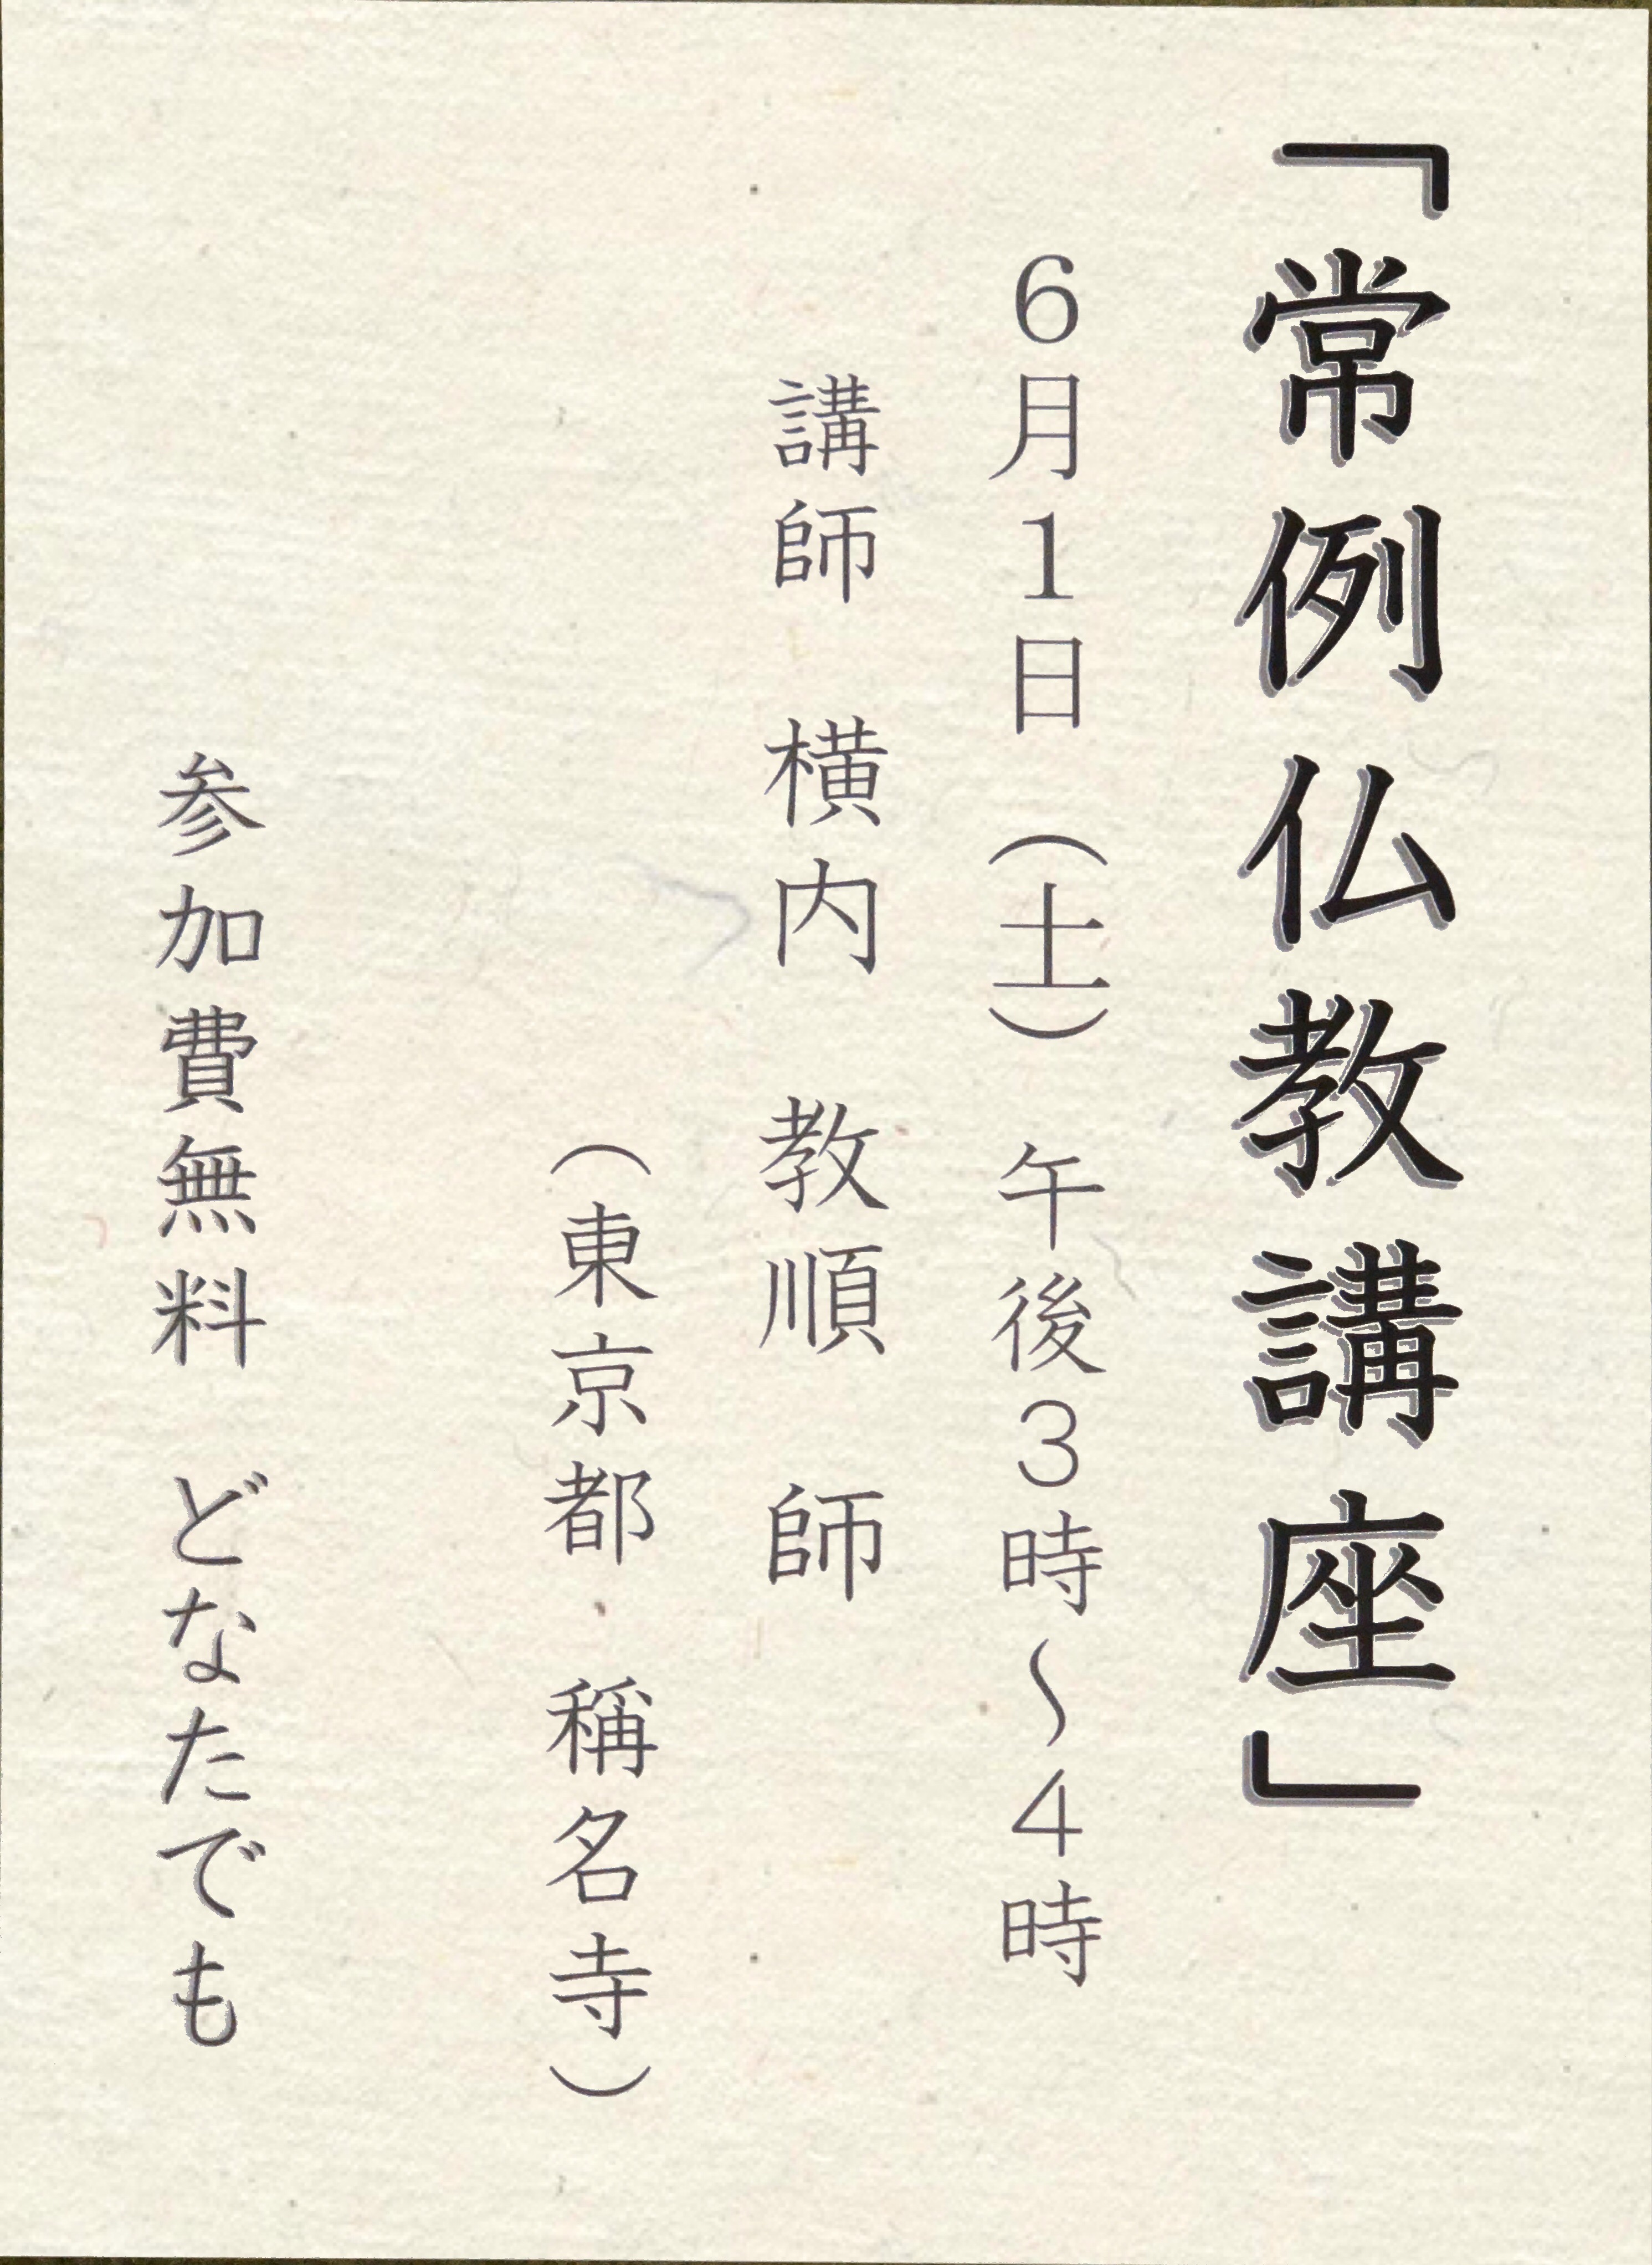 「常例仏教講座」
6月1日（土）　午後3時～4時
講師　横内　教順　師
（東京都　稱名寺）
参加費無料　どなたでも